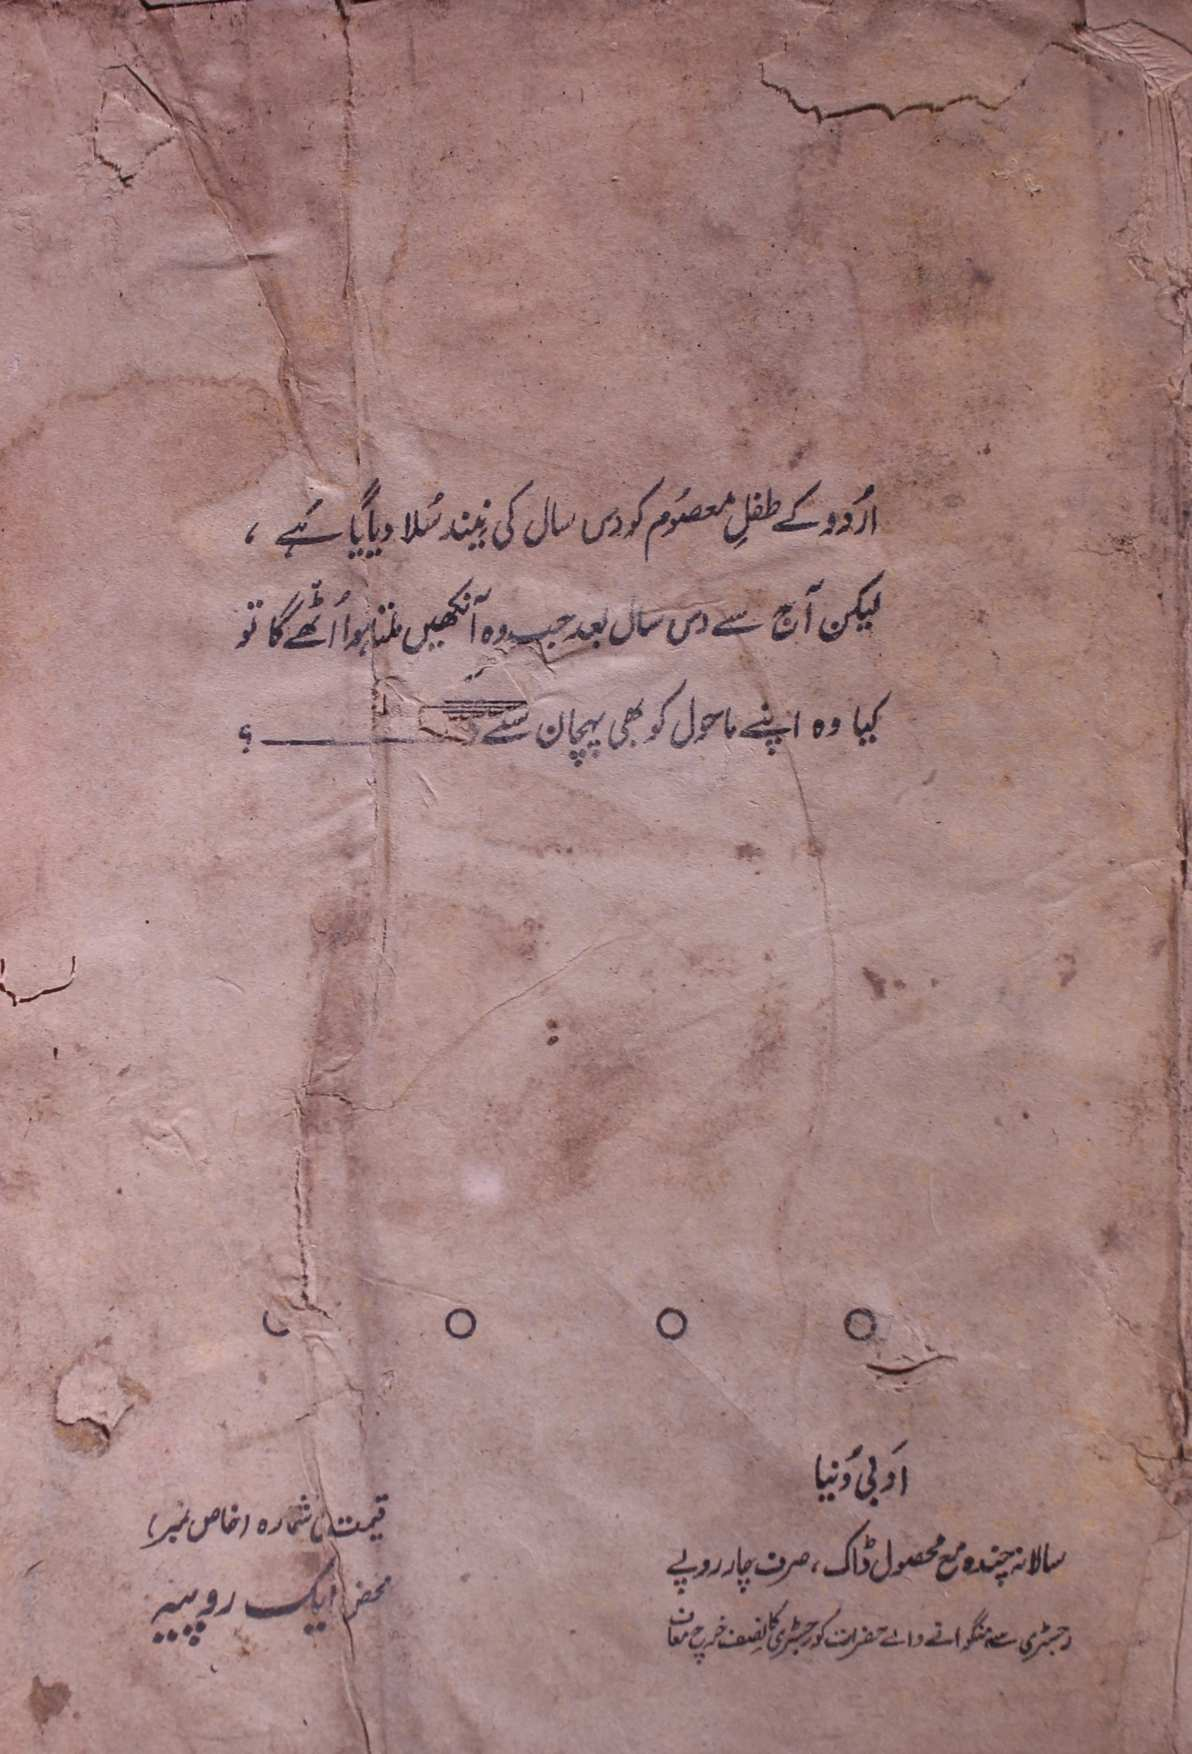 اُردو کے طفلِ معصُوم کو دس سال کی نیند سُلا دیا گیا ہَے ،
لیکن آج سے دس سال بعد جب وہ آنکھیں ملتا ہوا اُٹھے گا تو
کیا وہ اپنے ماحول کو بھی پہچان سکے ؟
ادبی دُنیا
سالانہ چندہ مع محصول ڈاک ، صرف چار روپے
رجسٹری سے منگوانے والے حضرات کو رجسٹری کا نصف خرچ معاف
قیمت فی شمارہ (خاص نمبر)
محض ایک روپیہ